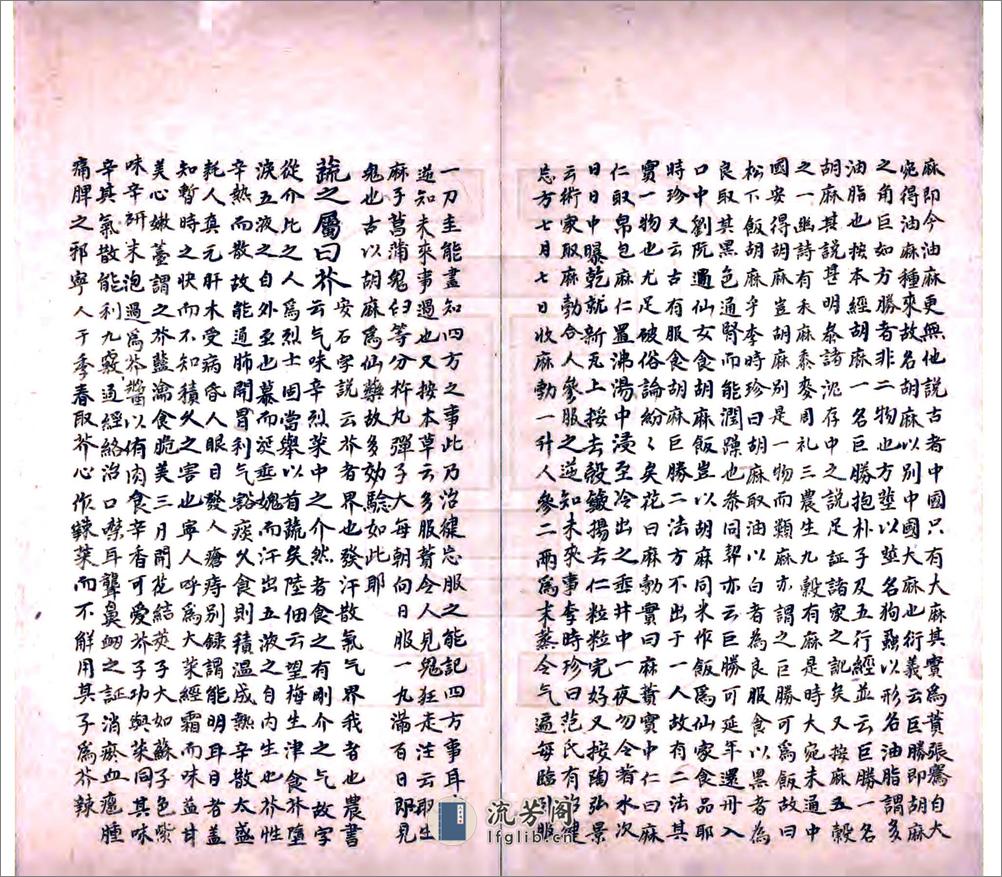 麻即今油麻更無他說古者中國只有大麻其實爲蕡張騫自大
宛得油麻種來故名胡麻以別中國大麻也衍義云巨勝即胡麻
之角巨如方勝者非二物也方莖以莖名狗蝨以形名油脂謂多
油脂也按本經胡麻一名巨勝抱朴子及五行經並云巨勝一名
胡麻其說甚明泰諸泥存中之說足証諸家之訛矣又按麻五穀
之一豳詩有禾麻菽麥周礼三農生九穀有麻是時大宛未通中
國安得胡麻豈胡麻別是一物而類麻亦謂之巨勝可爲飯故曰
松下飯胡麻乎李時珍曰胡麻取油以白者為良服食以黑者為
良取其黑色通腎而能潤躁也叅同契亦云巨勝可延年還丹入
口中劉阮遇仙女食胡麻飯豈以胡麻同米作飯爲仙家食品耶
時珍又云古有服食胡麻巨勝二法方不出于一人故有二法其
實一物也尤足破俗論紛〻矣花曰麻勃實曰麻蕡實中仁曰麻
仁取帛包麻仁置沸湯中浸至冷出之垂井中一夜勿令著水次
日日中曝乾就新瓦上挼去殼簸揚去仁粒粒完好又按陶弘景
云術家取麻勃合人參服之逆知未來事李時珍曰范氏有治健
忘方七月七日收麻勃一升人參二兩爲末蒸令气遍每臨卧服
一刀圭能盡知四方之事此乃治健忘服之能記四方事耳
逆知未來事過也又按本草云多服蕡令人見鬼狂走注云取生
麻子菖蒲鬼臼等分杵丸彈子大每朝向日服一丸滿百日即見
鬼也古以胡麻爲仙藥故多効驗如此耶
蔬之屬曰芥安石字說云芥者界也發汗散氣气界我者也農書
云气味辛烈菜中之介然者食之有剛介之气故字
從介比之人爲烈士固當舉以首蔬矣陸佃云望梅生津食芥墮
淚五液之自外至也慕而涎垂媿而汗出五液之自内生也芥性
辛熱而散故能通肺開胃利气豁痰久食則積温成熱辛散太盛
耗人真元肝木受病昏人眼目發人瘡痔別録謂能明耳目者蓋
知暫時之快而不知積久之害也寧人人呼爲大菜經霜而味益甘
美心嫩薹謂之芥藍瀹食脆美三月開花結莢子大如蘇子色紫
味辛研末泡過爲芥醬以侑肉食辛香可愛芥子功與菜同其味
辛其氣散能利九竅通經絡治口噤耳聾鼻衂之証消瘀血癰腫
痛脾之邪寧人于季春取芥心作辣菜而不解用其子爲芥辣
流芳阁
lfglib.cn